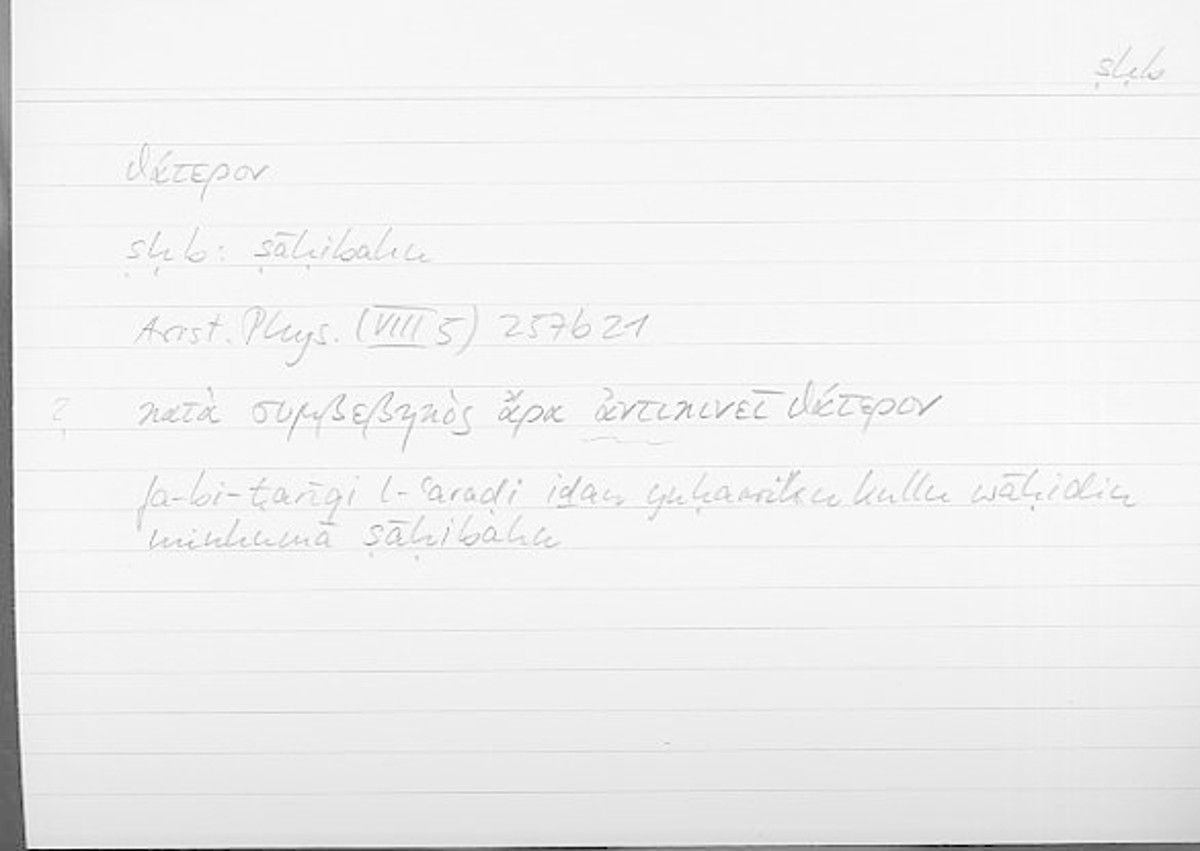 ṣḥb
θάτερον
ṣḥb: ṣāḥibahu
Arist. Phys. (VIII 5) 257b21
? κατὰ συμβεβηκὸς ἄρα ἀντικινεῖ θάτερον
fa-bi-ṭarīqi l-ʿaraḍi iḏan yuḥarriku kullu wāḥidin
minhumā ṣāḥibahu